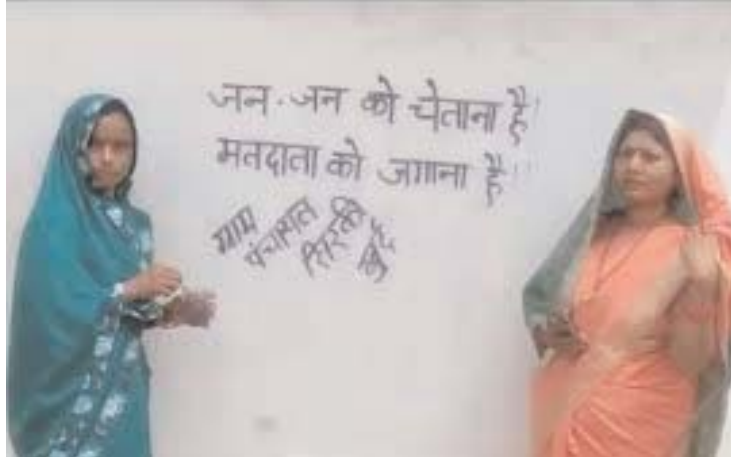 जन-जन को चेताना है!
मतदाता को जगाना है!!
ग्राम
पंचायत